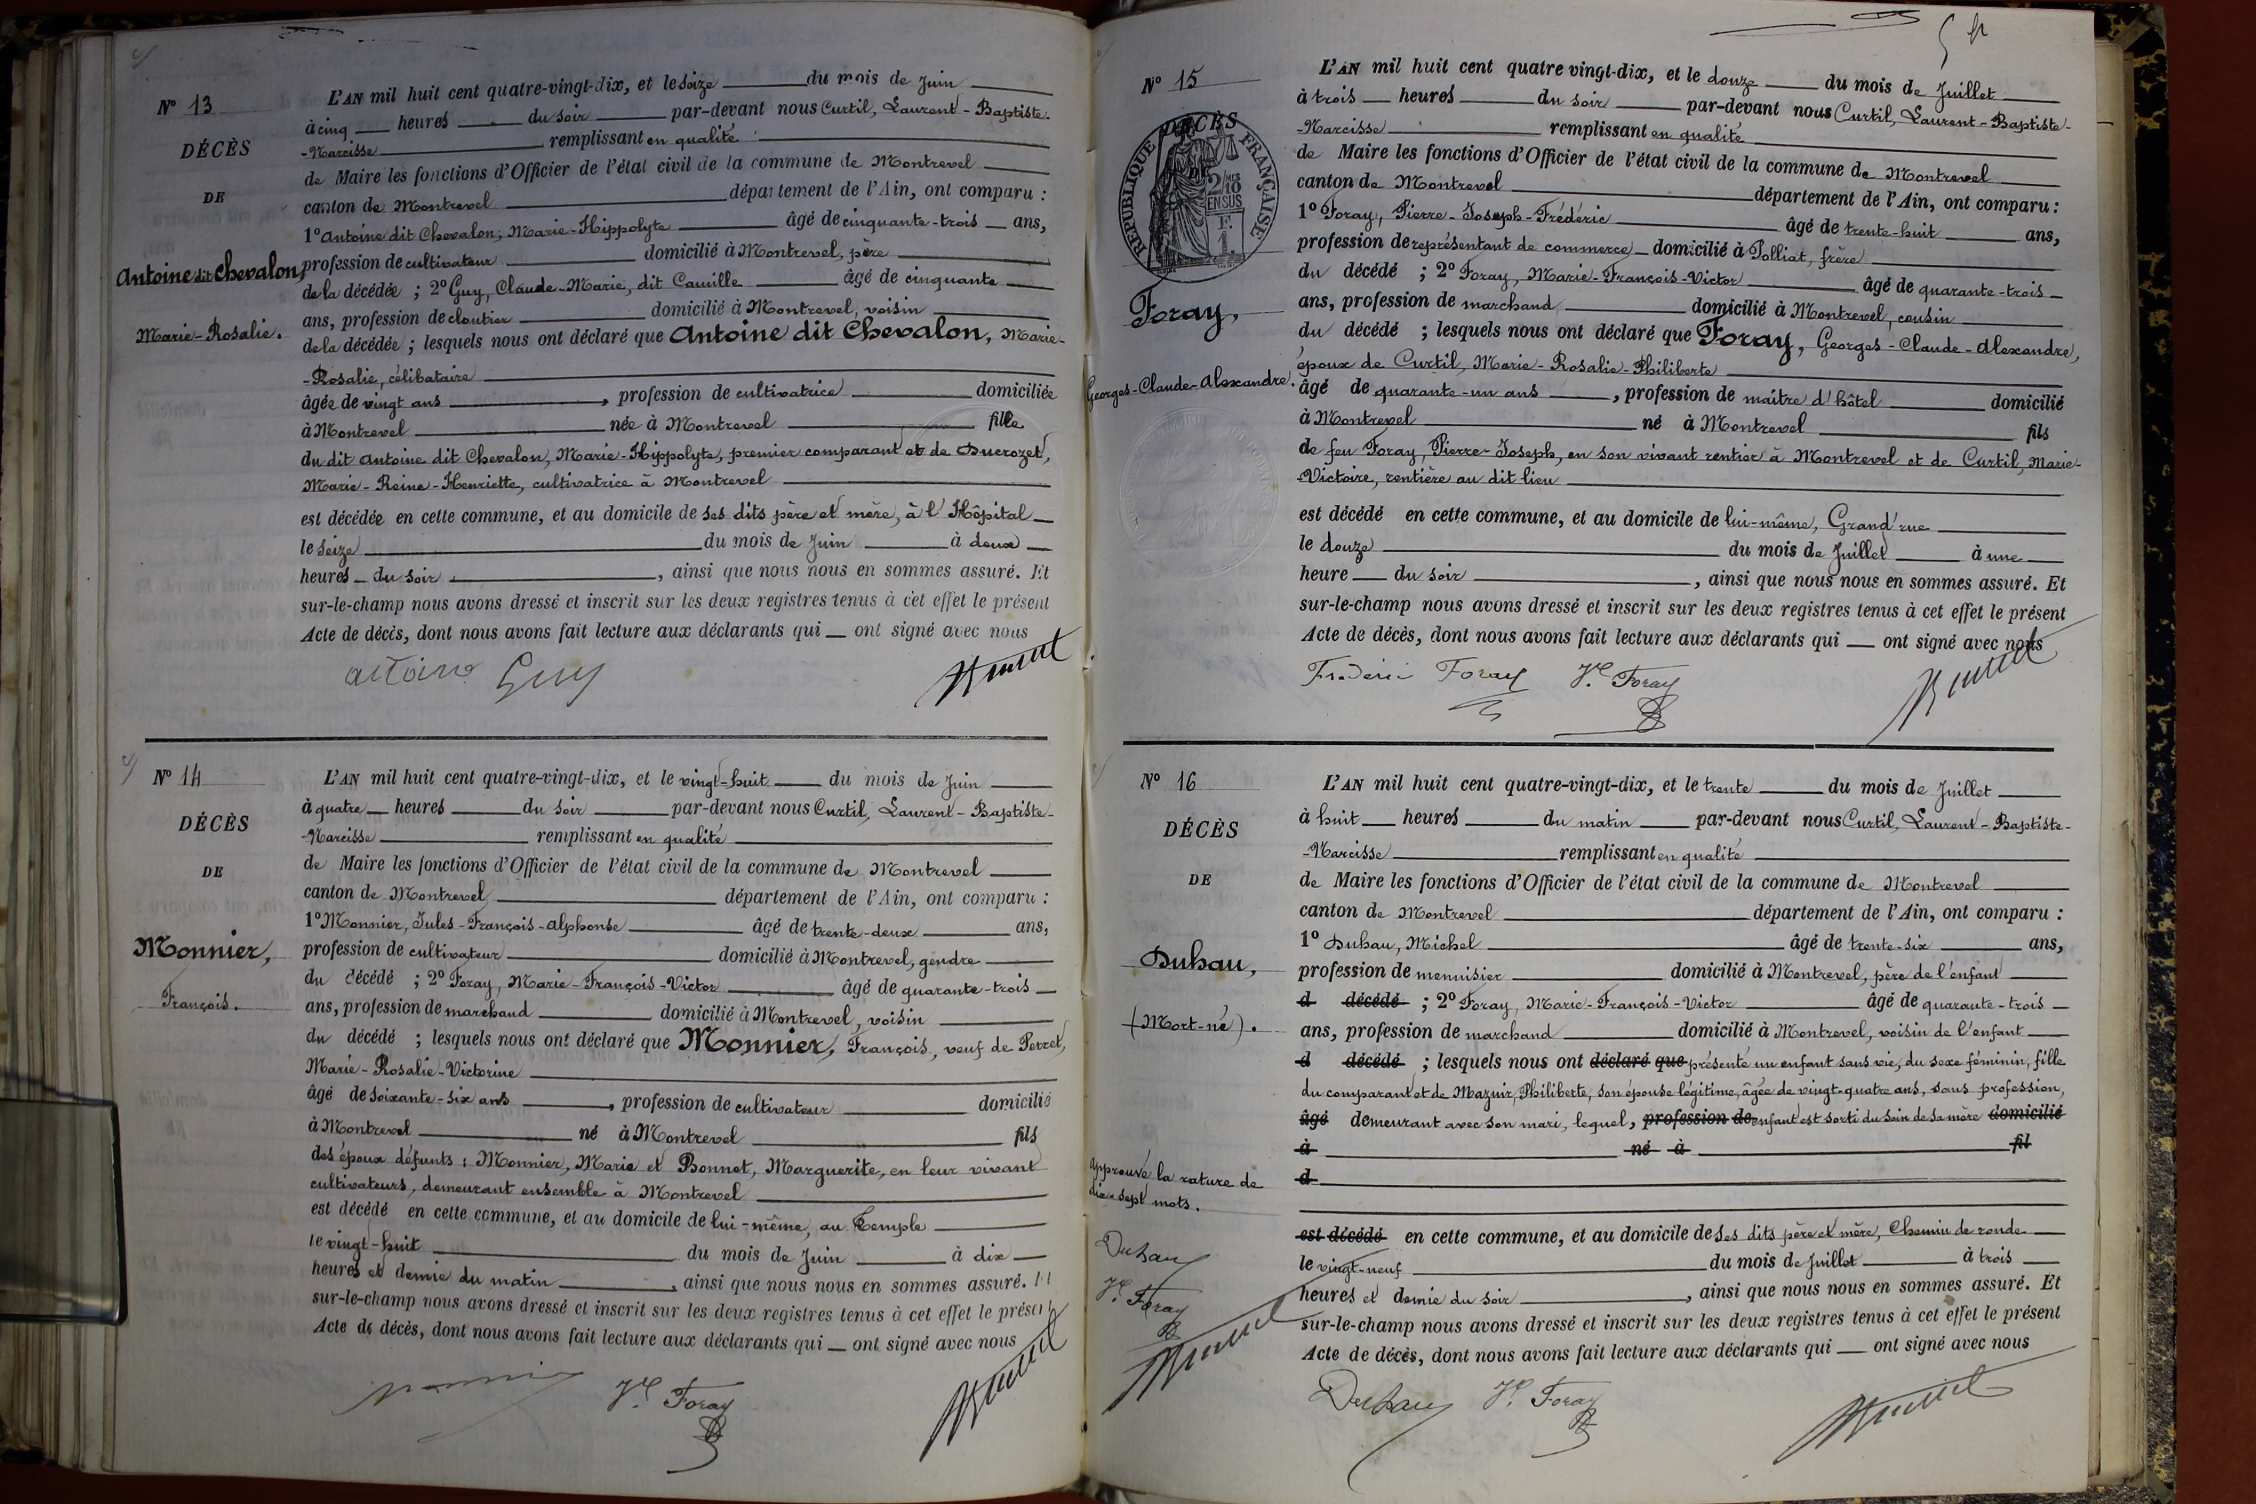 N° 13
DÉCÈS
DE
Antoine dit Chevalon,
Marie-Rosalie.
L'AN mil huit cent quatre-vingt-dix, et le seize du mois de Juin
à cinq heures du soir par-devant nous Curtil, Laurent-Baptiste-
-Narcisse remplissant en qualité
de Maire les fonctions d'Officier de l'état civil de la commune de Montrevel
canton de Montrevel département de l'Ain, ont comparu :
1° Antoine dit Chevalon, Marie-Hippolyte âgé de cinquante-trois ans,
profession de cultivateur domicilié à Montrevel, père
de la décédée ; 2° Guy, Claude-Marie, dit Camille âgé de cinquante
ans, profession de cloutier domicilié à Montrevel, voisin
de la décédée ; lesquels nous ont déclaré que Antoine dit Chevalon, Marie-
-Rosalie, célibataire
âgée de vingt ans , profession de cultivatrice domiciliée
à Montrevel née à Montrevel fille
du dit Antoine dit Chevalon, Marie-Hippolyte, premier comparant et de Ducrozet,
Marie-Reine-Henriette, cultivatrice à Montrevel
est décédée en cette commune, et au domicile de ses dits père et mère, à l'Hôpital
le seize du mois de Juin à deux
heures du soir , ainsi que nous nous en sommes assuré. Et
sur-le-champ nous avons dressé et inscrit sur les deux registres tenus à cet effet le présent
Acte de décès, dont nous avons fait lecture aux déclarants qui ont signé avec nous
Guy
N° 14
DÉCÈS
DE
Monnier,
François.
L'AN mil huit cent quatre-vingt-dix, et le vingt-huit du mois de Juin
à quatre heures du soir par-devant nous Curtil, Laurent-Baptiste-
-Narcisse remplissant en qualité
de Maire les fonctions d'Officier de l'état civil de la commune de Montrevel
canton de Montrevel département de l'Ain, ont comparu :
1° Monnier, Jules-François-Alphonse âgé de trente-deux ans,
profession de cultivateur domicilié à Montrevel, gendre
du décédé ; 2° Foray, Marie-François-Victor âgé de quarante-trois
ans, profession de marchand domicilié à Montrevel, voisin
du décédé ; lesquels nous ont déclaré que Monnier, François, veuf de Perret,
Marie-Rosalie-Victorine
âgé de soixante-six ans , profession de cultivateur domicilié
à Montrevel né à Montrevel fils
des époux défunts : Monnier, Marie et Bonnet, Marguerite, en leur vivant
cultivateurs, demeurant ensemble à Montrevel
est décédé en cette commune, et au domicile de lui-même, au Temple
le vingt-huit du mois de Juin à dix
heures et demie du matin , ainsi que nous nous en sommes assuré. Et
sur-le-champ nous avons dressé et inscrit sur les deux registres tenus à cet effet le présent
Acte de décès, dont nous avons fait lecture aux déclarants qui ont signé avec nous
Vor Foray
N° 15
DÉCÈS
DE
RÉPUBLIQUE FRANÇAISE
2/10 EN SUS
F. 1
Foray,
Georges-Claude-Alexandre.
L'AN mil huit cent quatre vingt-dix, et le douze du mois de Juillet
à trois heures du soir par-devant nous Curtil, Laurent-Baptiste-
-Narcisse remplissant en qualité
de Maire les fonctions d'Officier de l'état civil de la commune de Montrevel
canton de Montrevel département de l'Ain, ont comparu :
1° Foray, Pierre-Joseph-Frédéric âgé de trente-huit ans,
profession de représentant de commerce domicilié à Polliat, frère
du décédé ; 2° Foray, Marie-François-Victor âgé de quarante-trois
ans, profession de marchand domicilié à Montrevel, cousin
du décédé ; lesquels nous ont déclaré que Foray, Georges-Claude-Alexandre,
époux de Curtil, Marie-Rosalie-Philiberte
âgé de quarante-un ans , profession de maître d'hôtel domicilié
à Montrevel né à Montrevel fils
de feu Foray, Pierre-Joseph, en son vivant rentier à Montrevel et de Curtil, Marie-
-Victoire, rentière au dit lieu
est décédé en cette commune, et au domicile de lui-même, Grand'rue
le douze du mois de Juillet à une
heure du soir , ainsi que nous nous en sommes assuré. Et
sur-le-champ nous avons dressé et inscrit sur les deux registres tenus à cet effet le présent
Acte de décès, dont nous avons fait lecture aux déclarants qui ont signé avec nous
Frederic Foray Vor Foray
N° 16
DÉCÈS
DE
Duhau,
(Mort-né).
approuvé la rature de
dix-sept mots.
Duhau
Vor Foray
L'AN mil huit cent quatre-vingt-dix, et le trente du mois de Juillet
à huit heures du matin par-devant nous Curtil, Laurent-Baptiste-
-Narcisse remplissant en qualité
de Maire les fonctions d'Officier de l'état civil de la commune de Montrevel
canton de Montrevel département de l'Ain, ont comparu :
1° Duhau, Michel âgé de trente-six ans,
profession de menuisier domicilié à Montrevel, père de l'enfant
d décédé ; 2° Foray, Marie-François-Victor âgé de quarante-trois
ans, profession de marchand domicilié à Montrevel, voisin de l'enfant
d décédé ; lesquels nous ont déclaré que présenté un enfant sans vie, du sexe féminin, fille
du comparant et de Mazuir, Philiberte, son épouse légitime, âgée de vingt-quatre ans, sans profession,
âgé demeurant avec son mari, lequel, profession de enfant est sorti du sein de sa mère domicilié
à né à fil
d
est décédé en cette commune, et au domicile de ses dits père et mère, Chemin de ronde
le vingt-neuf du mois de Juillet à trois
heures et demie du soir , ainsi que nous nous en sommes assuré. Et
sur-le-champ nous avons dressé et inscrit sur les deux registres tenus à cet effet le présent
Acte de décès, dont nous avons fait lecture aux déclarants qui ont signé avec nous
Duhau Vor Foray